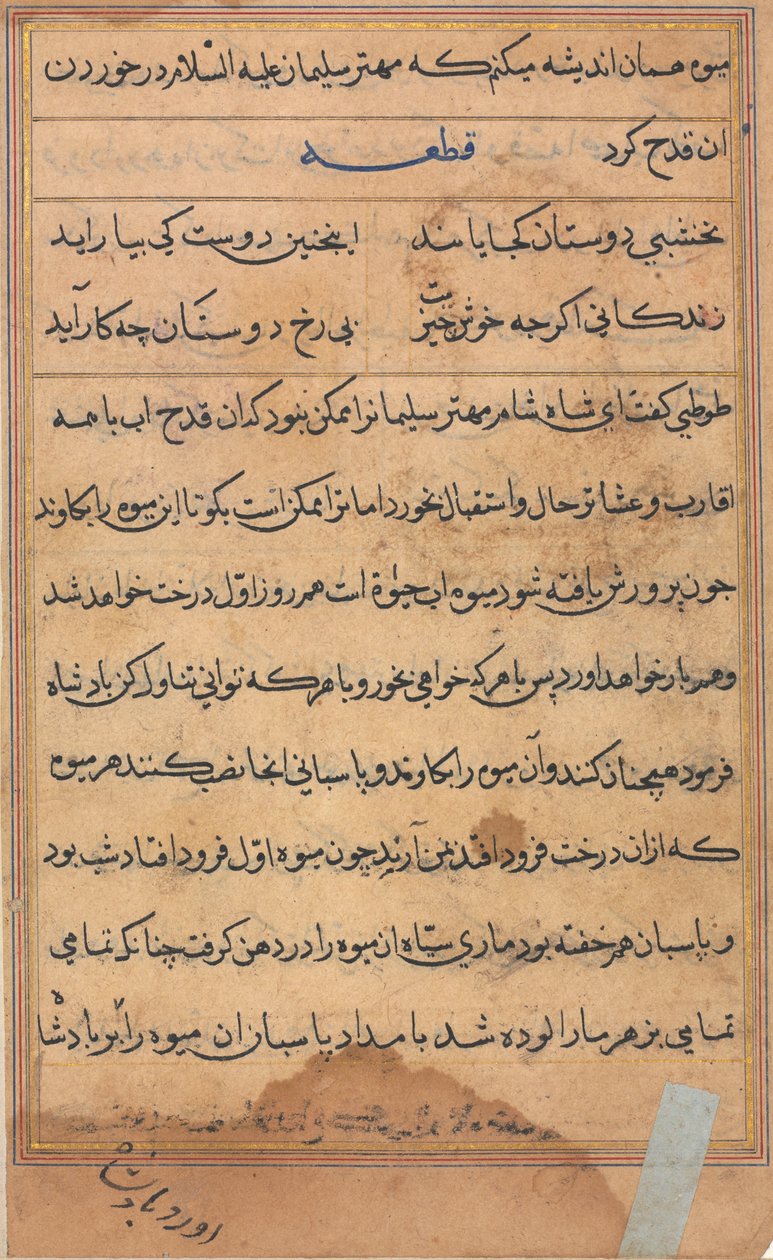 میوه همان اندیشه میکنم که مهتر سلیمان علیه السلام در خوردن
ان قدح کرد قطعه
نخشبی دوستان کجا یابند اینچنین دوست کی بیاراید
زندکانی اکرجه خوش جیزیت بی رخ دوستان چه کار آید
طوطی کفت ای شاه شاهر مهتر سلیمانرا ممکن نبود که ان قدح اب با همه
اقارب و عشائر حال و استقبال نخورد اما ترا ممکن است بکو تا این میوه را بکاوند
جون پرورش یافته شود میوه اب حیوة است هم روز اوّل درخت خواهد شد
و هم بار خواهد اورد پس با هر که خواهی بخور و با هر که توانی تناول کن بادشاه
فرمود همچنان کنند و آن میوه را بکاوند و پاسبانی انجا نصب کنند هر میوه
که ازان درخت فرود افتد بمن آرید چون میوه اوّل فرود افتاد شب بود
و پاسبان هم خفته بود ماری سیّاه ان میوه را در دهن کرفت چنانکه تمامی
تمامی بزهر مار الوده شد بامداد پاسبان ان میوه را بر بادشاه
اورد بادشاه